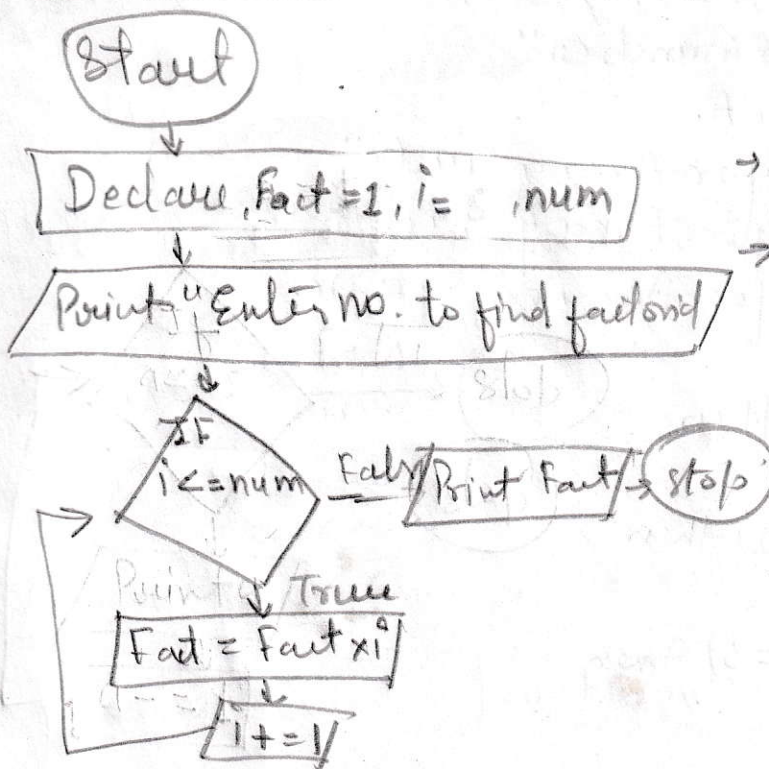 Start
Declare, Fact =1, i= , num
Print "Enter no. to find factorid
If
i<=num
False
Print Fact
stop
True
Fact = Fact x i
i+=1